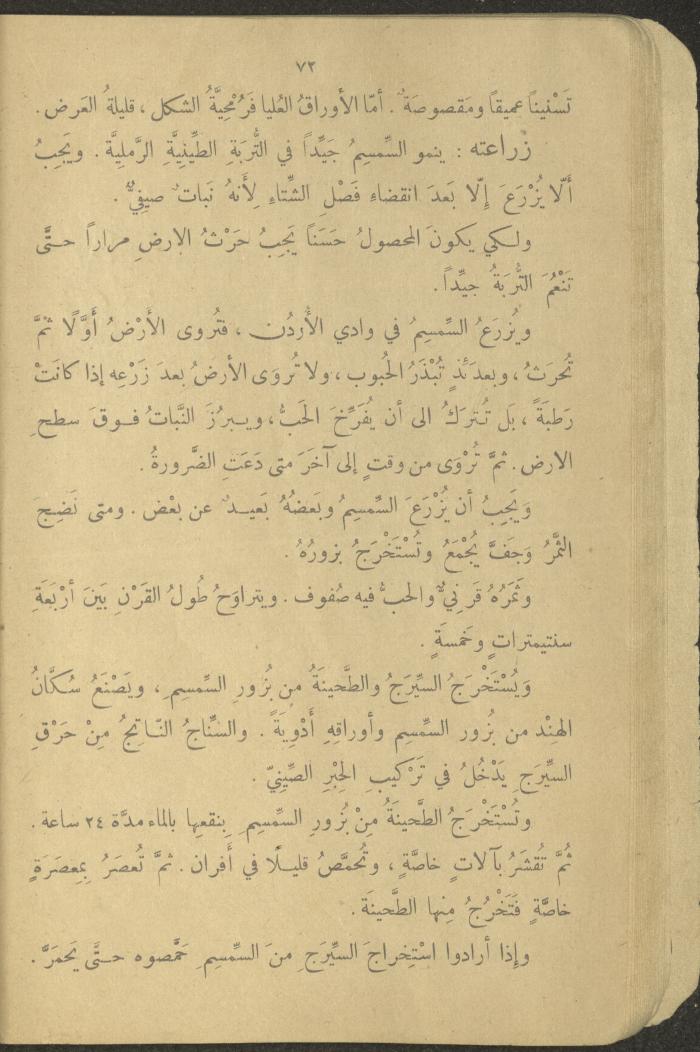 ٧٢
تَسْنيناً عميقاً ومَقصوصَةٌ . أمّا الأوراقُ العُليا فَرُمْحِيَّةُ الشكل ، قليلةُ العَرض .
زراعته : ينمو السِّمسِمُ جَيِّداً في التُّربَةِ الطِّينِيَّةِ الرَّملِيَّة . ويَجِبُ
أَلّا يُزْرَعَ إِلّا بَعدَ انقضاءِ فَصْلِ الشِّتاءِ لِأَنهُ نَباتٌ صيفِيٌّ .
ولكي يكونَ المحصولُ حَسَنَاً يَجِبُ حَرْثُ الارضِ مراراً حتَّى
تَنْعُمَ التُّربَةُ جيِّداً .
ويُزرَعُ السِّمسِمُ في وادي الأُردُن ، فتُروى الأَرْضُ أَوَّلًا ثمَّ
تُحرَثُ ، وبعدَئذٍ تُبْذَرُ الحُبوب ، ولا تُروَى الأرضُ بعدَ زَرْعِه إذا كانَتْ
رَطبَةً ، بَل تُترَكُ الى أن يُفَرِّخَ الحَبُّ ، ويبرُزَ النَّباتُ فوقَ سطحِ
الارض . ثمَّ تُرْوَى من وقتٍ إلى آخَرَ متى دَعَتِ الضَّرورةُ .
وَيَجِبُ أن يُزْرَعَ السِّمسِمُ وبَعضُهُ بَعيدٌ عن بعْض . ومتى نَضِجَ
الثَّمَرُ وَجَفَّ يُجْمَعُ وتُسْتَخْرَجُ بزورُهُ .
وثَمَرُهُ قَرنِيٌّ والحبُّ فيه صُفوف . ويتراوَحُ طُولُ القَرْنِ بَينَ أَرْبَعَةِ
سنتيمتراتٍ وخَمسَةٍ .
وَيُسْتَخْرَجُ السِّيرَجُ والطَّحينَةُ من بُزورِ السِّمسِمِ ، ويَصْنَعُ سُكَّانُ
الهِنْد من بُزور السِّمسِم وأوراقِهِ أَدْوِيَةً . والسِّناجُ النّاتِجُ مِنْ حَرْقِ
السِّيرَجِ يَدْخُلُ في تَرْكيبِ الحِبْرِ الصِّينِيّ .
وتُسْتَخْرَجُ الطَّحينَةُ مِنْ بُزورِ السِّمسِمِ بِنقعِها بالماء مدَّة ٢٤ ساعة .
ثُمَّ تُقْشَرُ بآلاتٍ خاصَّةٍ ، وتُحمَّصُ قليلًا في أَفران . ثمَّ تُعصَرُ بِمِعصَرَةٍ
خاصَّةٍ فَتَخْرُجُ مِنها الطَّحينَة .
وإِذا أرادوا اسْتِخراجَ السِّيرَجِ منَ السِّمسِمِ حَمَّصوه حتَّى يَحمَرَّ .